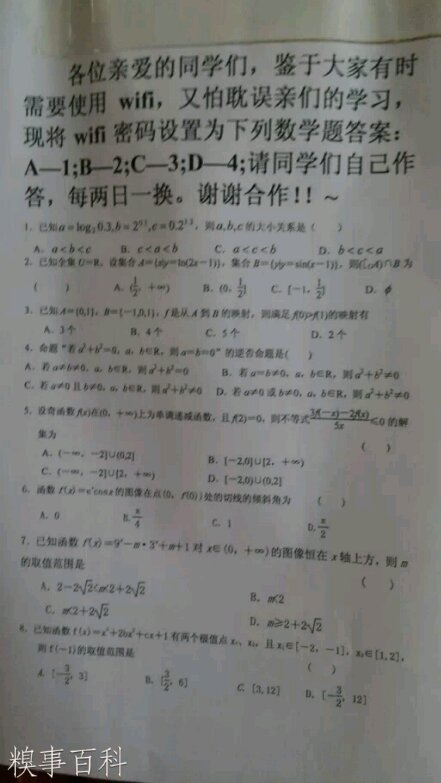 各位亲爱的同学们，鉴于大家有时
需要使用 wifi，又怕耽误亲们的学习，
现将 wifi 密码设置为下列数学题答案：
A—1;B—2;C—3;D—4;请同学们自己作
答，每两日一换。谢谢合作！！～
1. 已知a=log₂0.3,b=2^0.1,c=0.2^1.3，则a,b,c的大小关系是（ ）
A. a<b<c B. c<a<b C. a<c<b D. b<c<a
2. 已知全集U=R，设集合A={x|y=ln(2x-1)}，集合B={y|y=sin(x-1)}，则(∁ᵤA)∩B为
（ ） A. (1/2, +∞) B. (0, 1/2] C. [-1, 1/2] D. φ
3. 已知A={0,1}，B={-1,0,1}，f是从A到B的映射，则满足f(0)>f(1)的映射有
A. 3个 B. 4个 C. 5个 D. 2个
4. 命题“若a²+b²=0，a，b∈R，则a=b=0”的逆否命题是( )
A. 若a≠b≠0，a，b∈R，则a²+b²=0 B. 若a=b≠0，a，b∈R，则a²+b²≠0
C. 若a≠0且b≠0，a，b∈R，则a²+b²≠0 D. 若a≠0或b≠0，a，b∈R，则a²+b²≠0
5. 设奇函数f(x)在(0，+∞)上为单调递减函数，且f(2)=0，则不等式 3f(-x)-2f(x)/5x ≤0 的解
集为 （ ）
A. (-∞，-2]∪(0,2] B. [-2,0]∪[2，+∞)
C. (-∞，-2]∪[2，+∞) D. [-2,0)∪(0,2]
6. 函数 f(x)=eˣcosx的图像在点(0，f(0))处的切线的倾斜角为 （ ）
A. 0 B. π/4 C. 1 D. π/2
7. 已知函数 f(x)=9ˣ-m·3ˣ+m+1对 x∈(0，+∞)的图像恒在 x 轴上方，则 m
的取值范围是 （ ）
A. 2-2√2<m<2+2√2 B. m<2
C. m<2+2√2 D. m≥2+2√2
8. 已知函数f(x)=x³+2bx²+cx+1有两个极值点x₁，x₂，且x₁∈[-2，-1]，x₂∈[1,2]，
则f(-1)的取值范围是 （ ）
A. [-3/2，3] B. [3/2，6] C. [3,12] D. [-3/2，12]
糗事百科